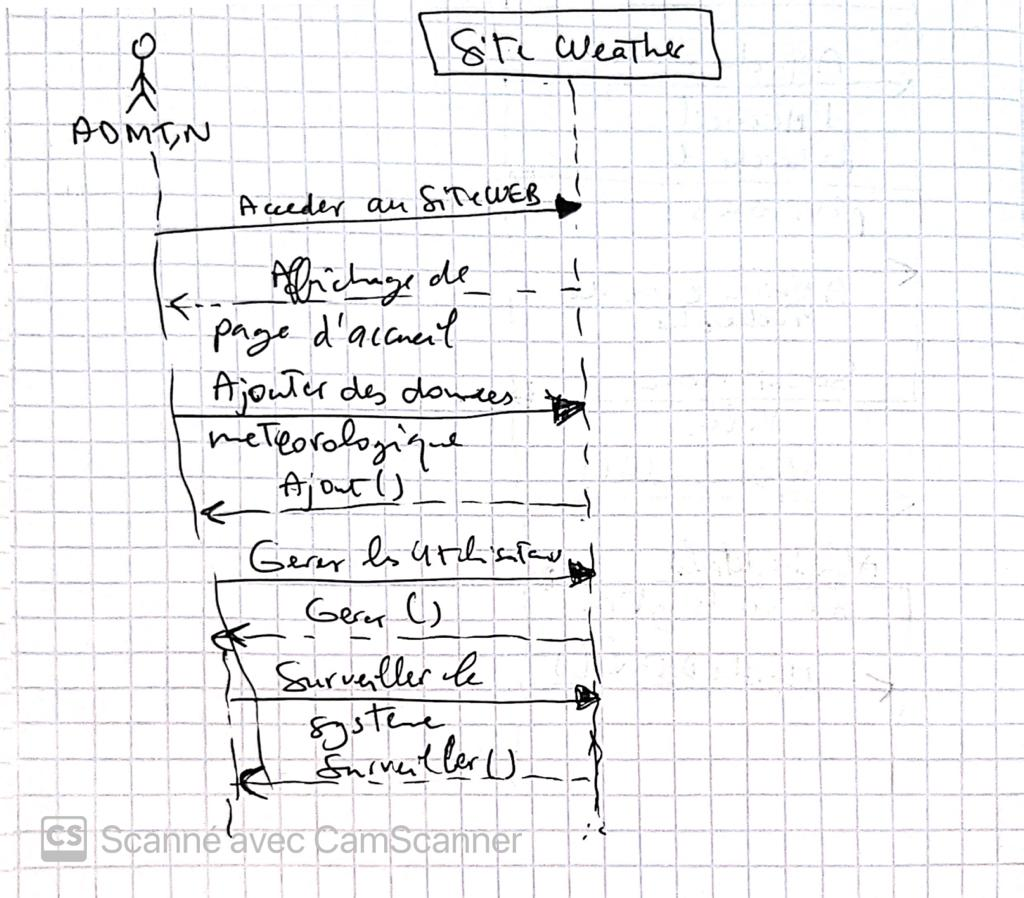 Site Weather
ADMIN
Acceder au SiteWEB
Affichage de
page d'accueil
Ajouter des données
meteorologique
Ajout()
Gerer les Utilisateur
Gerer ()
Surveiller le
systeme
Surveiller()
CS Scanné avec CamScanner